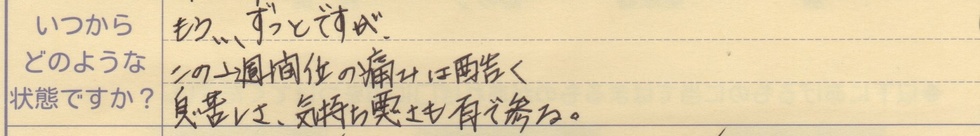 いつから
どのような
状態ですか?
もう、、、ずっとですが、
この1週間位の痛みは酷く
息苦しさ、気持ち悪さも有で参る。